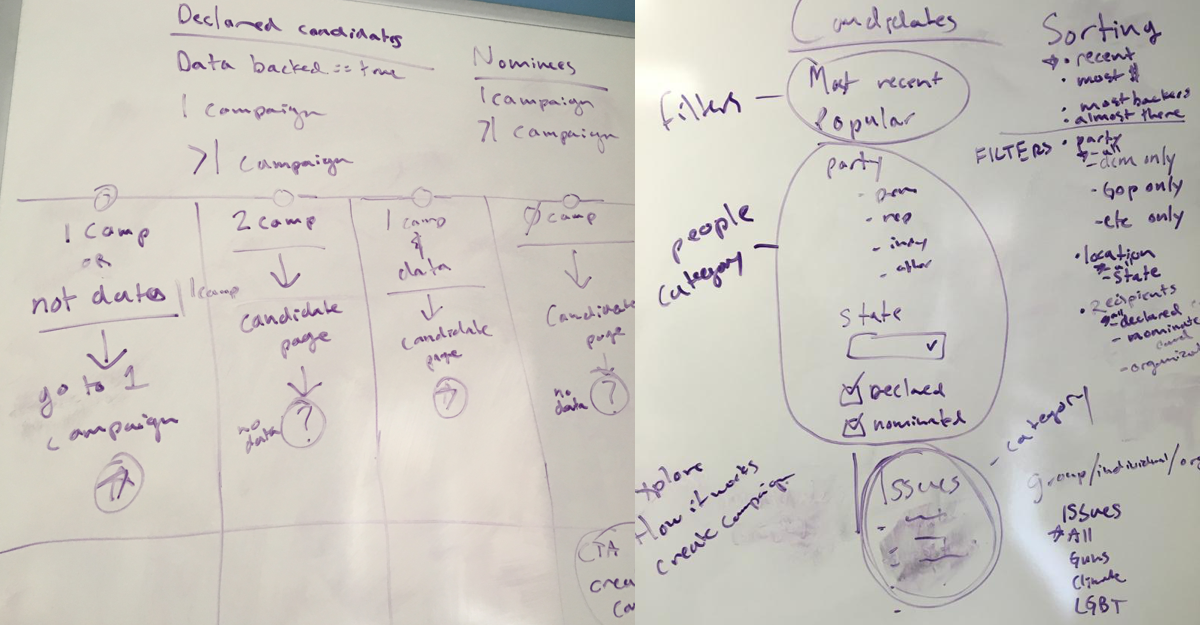 Declared candidates
Data backed == true
1 campaign
>1 campaign
Nominees
1 campaign
>1 campaign
1 camp
OR
not data
go to 1
campaign
1 camp
2 camp
candidate
page
no data
?
1 camp
data
candidate
page
0 camp
Candidate
page
no data
?
CTA
crea
Ca
Candidates
filters
Most recent
Popular
people
category
party
- dem
- rep
- indy
- other
state
Declared
nominated
Issues
- category
xplore
How it works
create campaign
Sorting
recent
most $
most backers
almost there
FILTERS
party
all
- dem only
- GOP only
- etc only
location
- state
Recipients
all
- declared
- nominate
- organizat
group/individual/org
Issues
All
Guns
Climate
LGBT